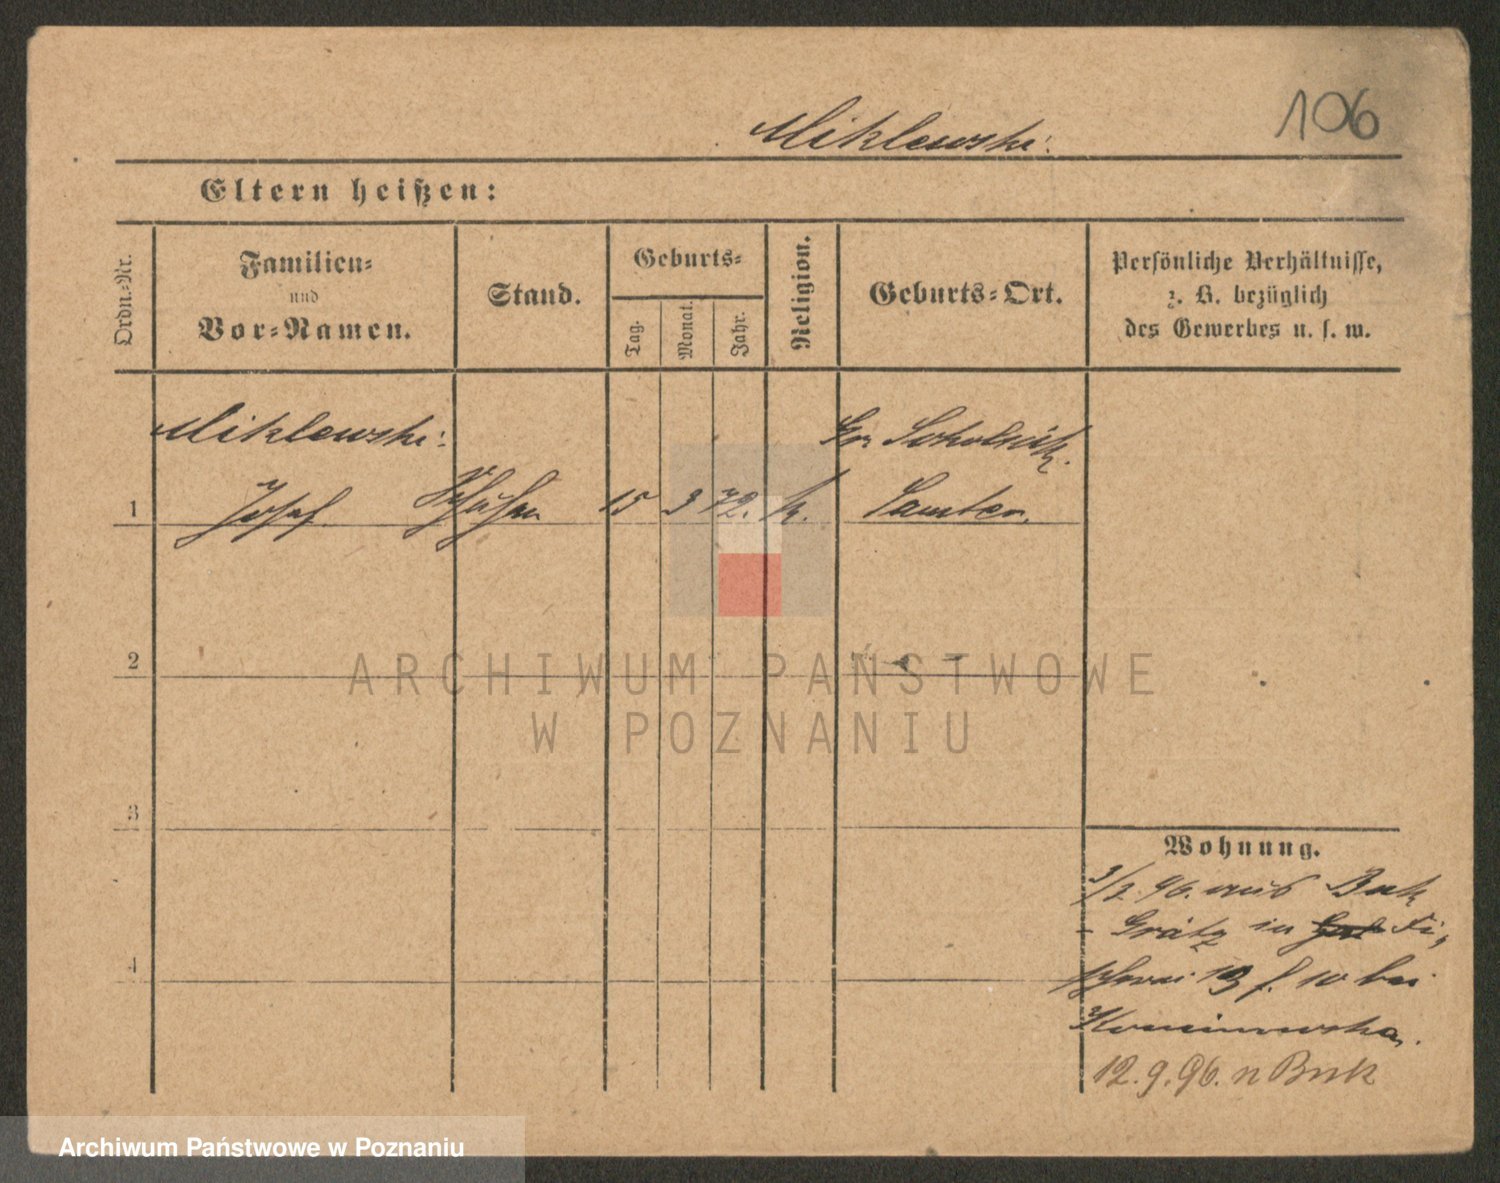 106
Miklewski.
Eltern heißen:
Ordn.-Nr.
Familien-
und
Vor-Namen.
Stand.
Geburts-
Tag.
Monat.
Jahr.
Religion.
Geburts-Ort.
Persönliche Verhältnisse,
z. B. bezüglich
des Gewerbes u. s. w.
Miklewski.
Gr Sokolnik.
1 Josef 15 3 72. k. Samter.
2
3
4
Wohnung.
96. aus Buk
- Grätz in Fi,
scherei 13 f. 10 bei
12.9.96. n Buk
ARCHIWUM PAŃSTWOWE
W POZNANIU
Archiwum Państwowe w Poznaniu